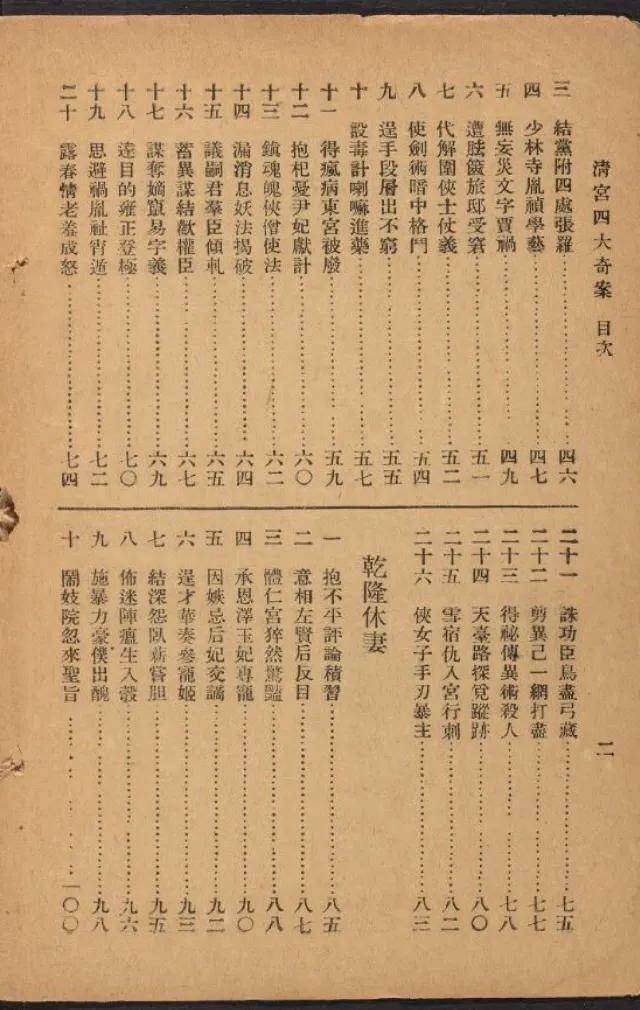 清宮四大奇案 目次
二
三 結黨附四處張羅……四六
四 少林寺胤禎學藝……四七
五 無妄災文字賈禍……四九
六 遭胠篋旅邸受窘……五一
七 代解圍俠士仗義……五二
八 使劍術暗中格鬥……五四
九 逞手段層出不窮……五五
十 設毒計喇嘛進藥……五七
十一 得瘋病東宮被廢……五九
十二 抱杞憂尹妃獻計……六〇
十三 鎮魂魄俠僧使法……六二
十四 漏消息妖法揭破……六四
十五 議嗣君羣臣傾軋……六五
十六 蓄異謀結歡權臣……六七
十七 謀奪嫡竄易字義……六九
十八 達目的雍正登極……七〇
十九 思避禍胤祉宵遁……七二
二十 露春情老羞成怒……七四
二十一 誅功臣鳥盡弓藏……七五
二十二 剪異己一網打盡……七七
二十三 得祕傳異術殺人……七八
二十四 天臺路探覓蹤跡……八〇
二十五 雪宿仇入宮行刺……八二
二十六 俠女子手刃暴主……八三
乾隆休妻
一 抱不平評論積習……八五
二 意相左賢后反目……八七
三 體仁宮猝然驚豔……八八
四 承恩澤玉妃專寵……九〇
五 因嫉忌后妃交謫……九二
六 逞才華奏參寵姬……九三
七 結深怨臥薪嘗胆……九五
八 佈迷陣瘟生入彀……九六
九 施暴力豪僕出醜……九八
十 鬧妓院忽來聖旨……一〇〇